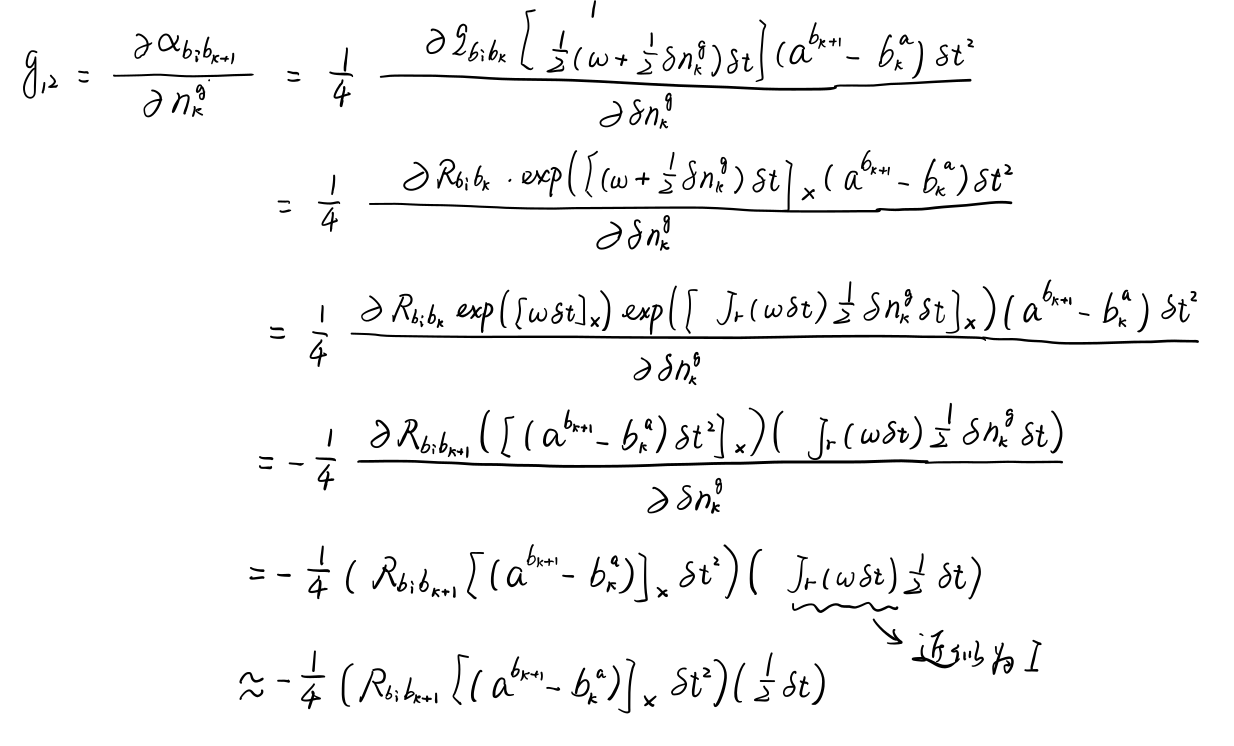 g_{12} = \frac{\partial \alpha_{b_i b_{k+1}}}{\partial n_k^g} = \frac{1}{4} \frac{\partial q_{b_i b_k} \begin{bmatrix} 1 \\ \frac{1}{2}(\omega + \frac{1}{2} \delta n_k^g) \delta t \end{bmatrix} (a^{b_{k+1}} - b_k^a) \delta t^2}{\partial \delta n_k^g}
= \frac{1}{4} \frac{\partial R_{b_i b_k} \cdot exp([(\omega + \frac{1}{2} \delta n_k^g) \delta t]_× (a^{b_{k+1}} - b_k^a) \delta t^2}{\partial \delta n_k^g}
= \frac{1}{4} \frac{\partial R_{b_i b_k} exp([\omega \delta t]_×) exp([J_r(\omega \delta t) \frac{1}{2} \delta n_k^g \delta t]_×) (a^{b_{k+1}} - b_k^a) \delta t^2}{\partial \delta n_k^g}
= -\frac{1}{4} \frac{\partial R_{b_i b_{k+1}} ([(a^{b_{k+1}} - b_k^a) \delta t^2]_×) (J_r(\omega \delta t) \frac{1}{2} \delta n_k^g \delta t)}{\partial \delta n_k^g}
= -\frac{1}{4} (R_{b_i b_{k+1}} [(a^{b_{k+1}} - b_k^a)]_× \delta t^2) (J_r(\omega \delta t) \frac{1}{2} \delta t)
近似为 I
≈ -\frac{1}{4} (R_{b_i b_{k+1}} [(a^{b_{k+1}} - b_k^a)]_× \delta t^2) (\frac{1}{2} \delta t)